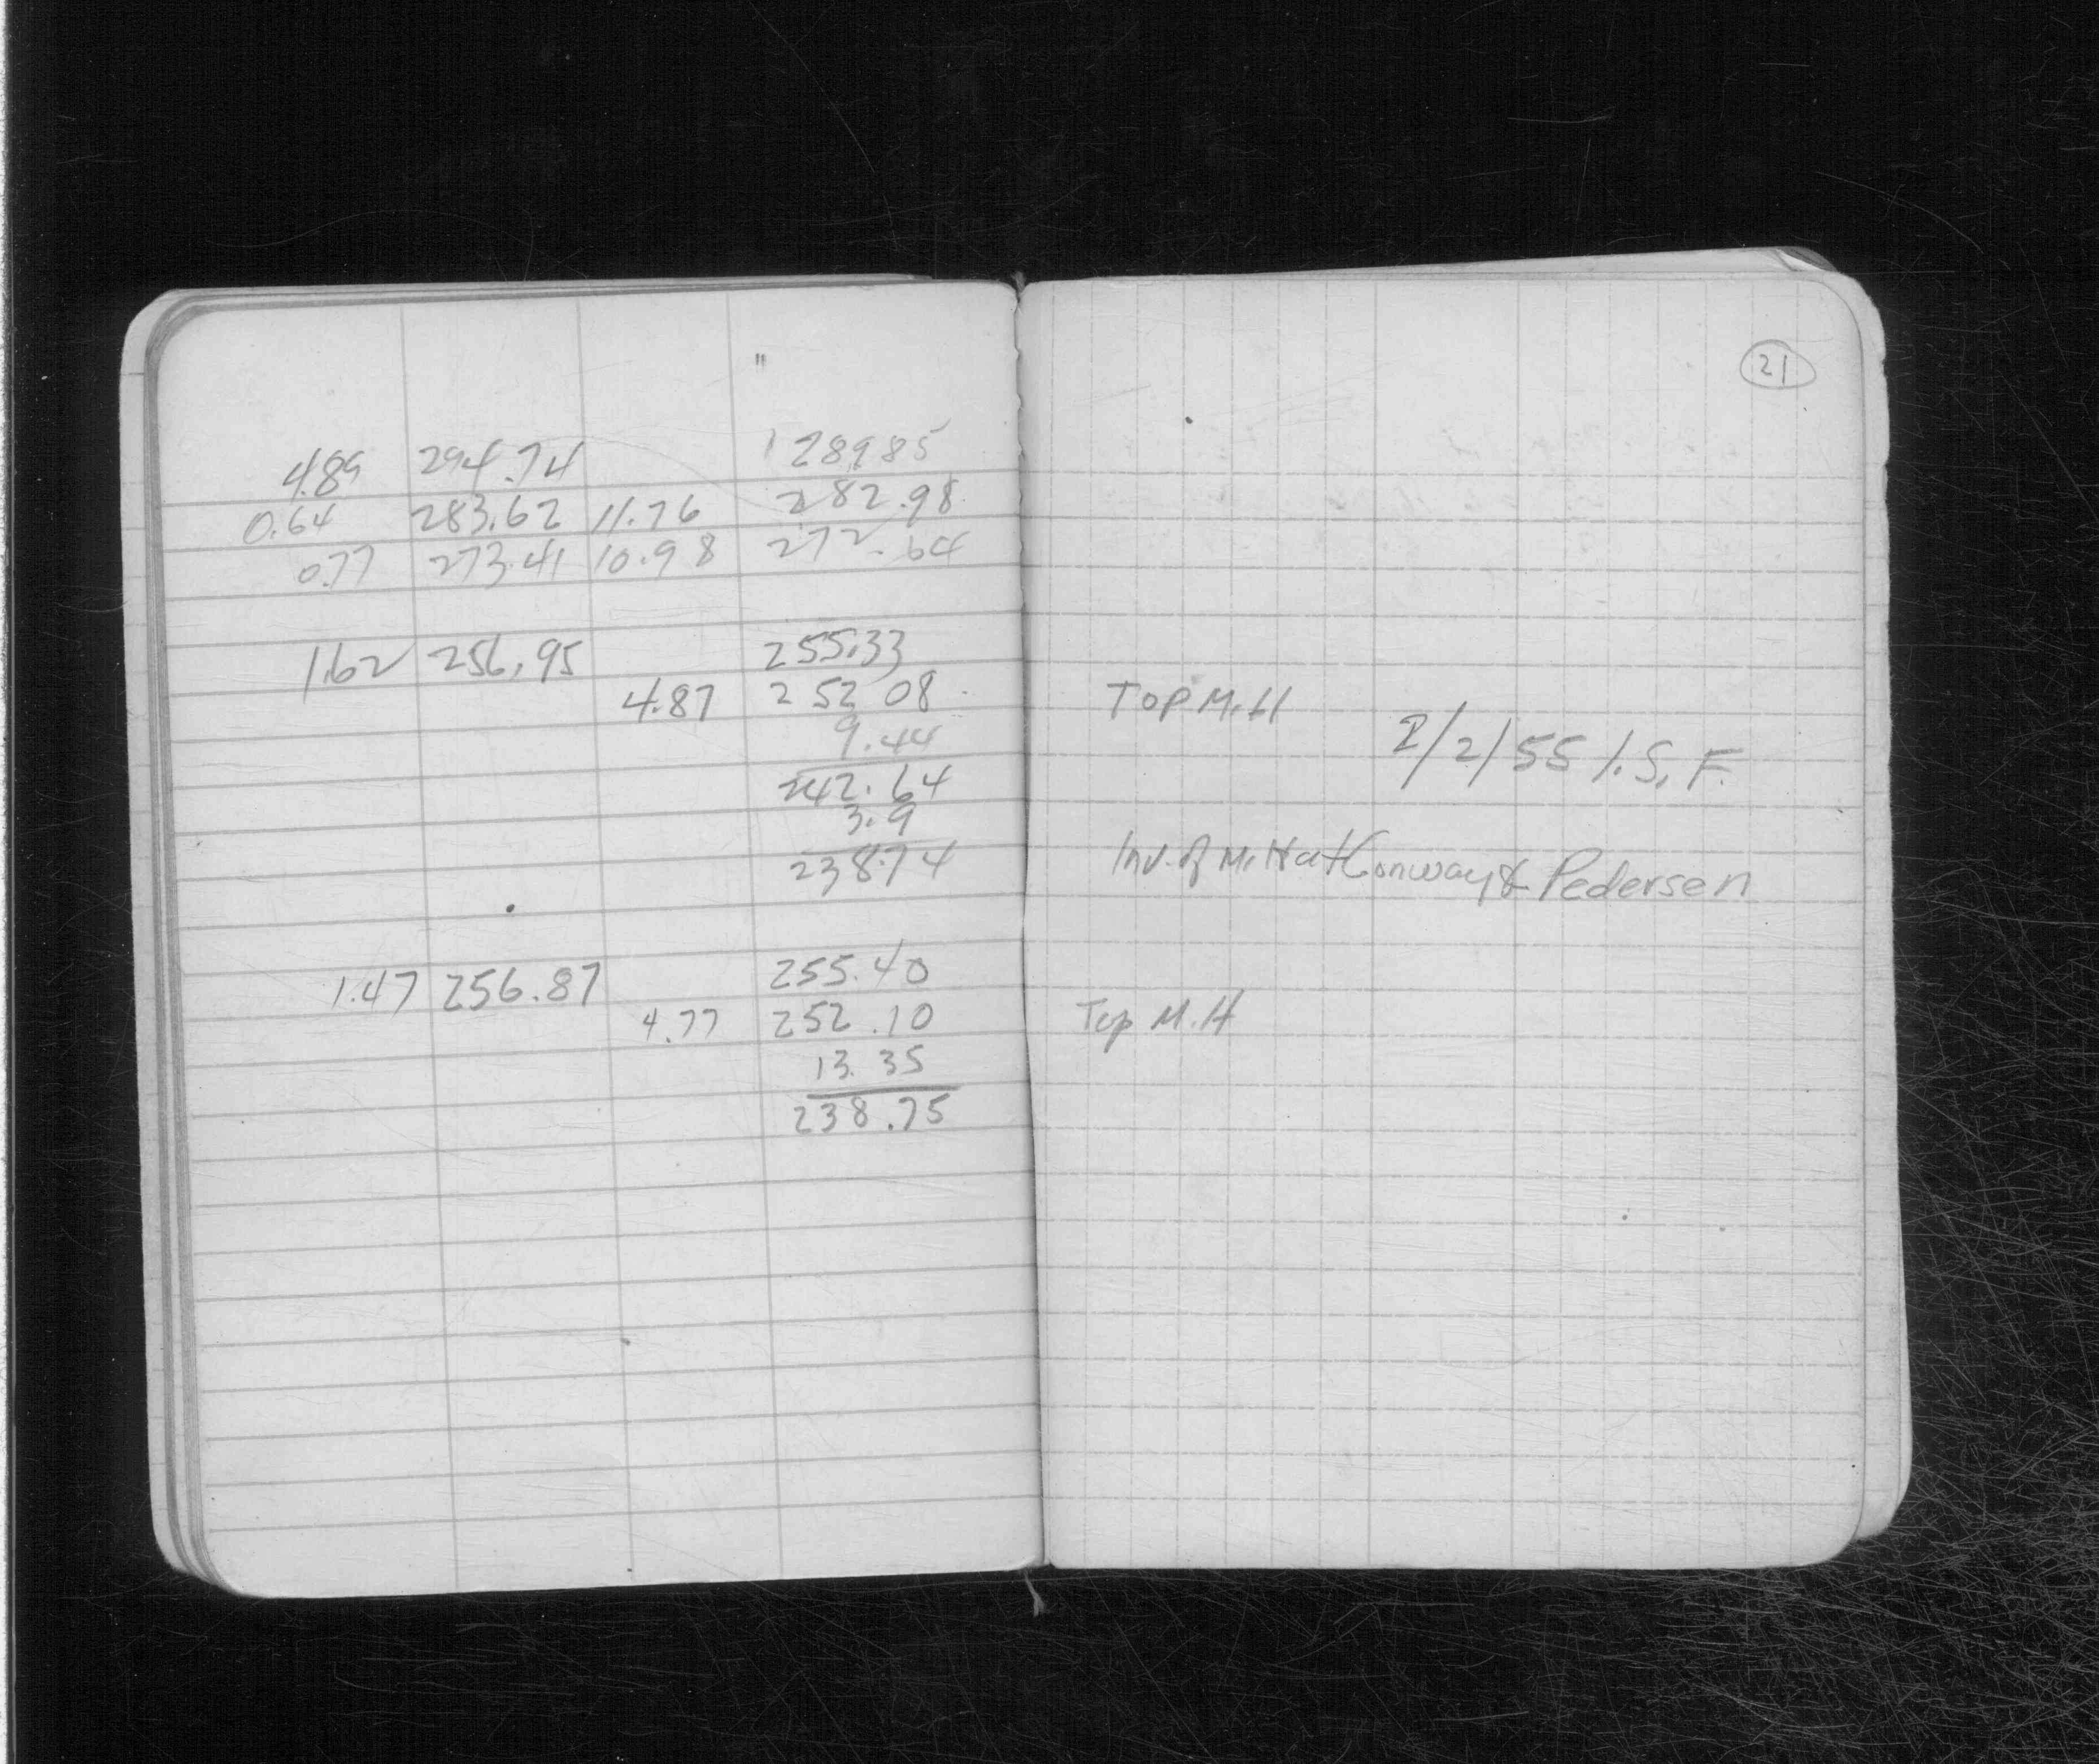 "
21
4.89 294.74 289.85
0.64 283.62 11.76 282.98
0.77 273.41 10.98 272.64
1.62 256.95 255.33
4.87 252 08 Top M.H
2/2/55 I.S.F.
9.44
242.64
3.9
238.74 Inv. of M.H at Conway & Pedersen
1.47 256.87 255.40
4.77 252.10 Top M.H
13.35
238.75